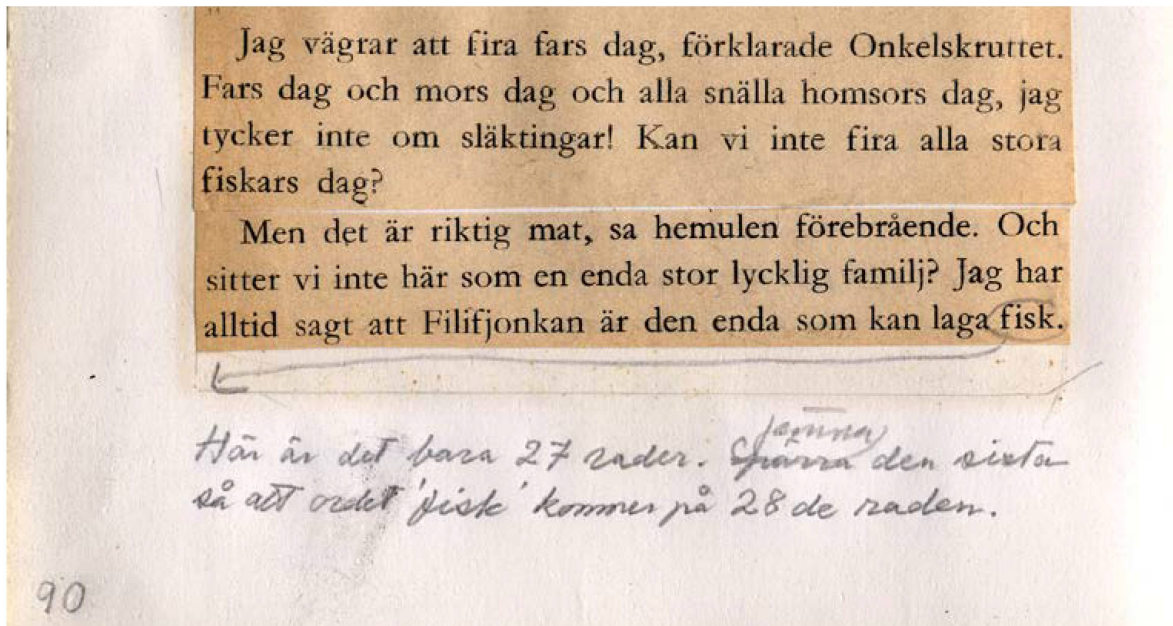 Jag vägrar att fira fars dag, förklarade Onkelskruttet.
Fars dag och mors dag och alla snälla homsors dag, jag
tycker inte om släktingar! Kan vi inte fira alla stora
fiskars dag?
Men det är riktig mat, sa hemulen förebrående. Och
sitter vi inte här som en enda stor lycklig familj? Jag har
alltid sagt att Filifjonkan är den enda som kan laga fisk.
jämna
Här är det bara 27 rader. Spärra den sista
så att ordet 'fisk' kommer på 28 de raden.
90